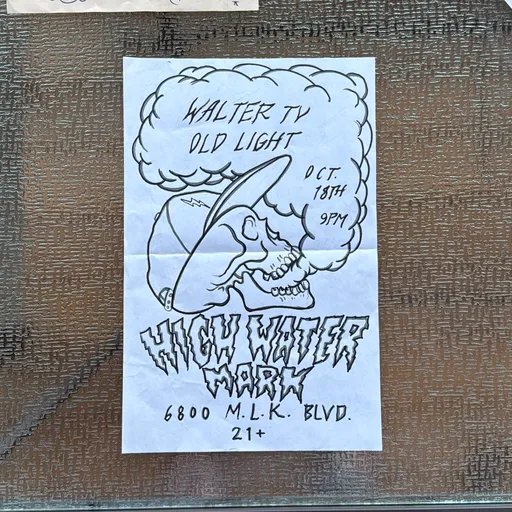 WALTER TV
OLD LIGHT
OCT.
18TH
9PM
HIGH WATER
MARK
6800 M.L.K. BLVD.
21+